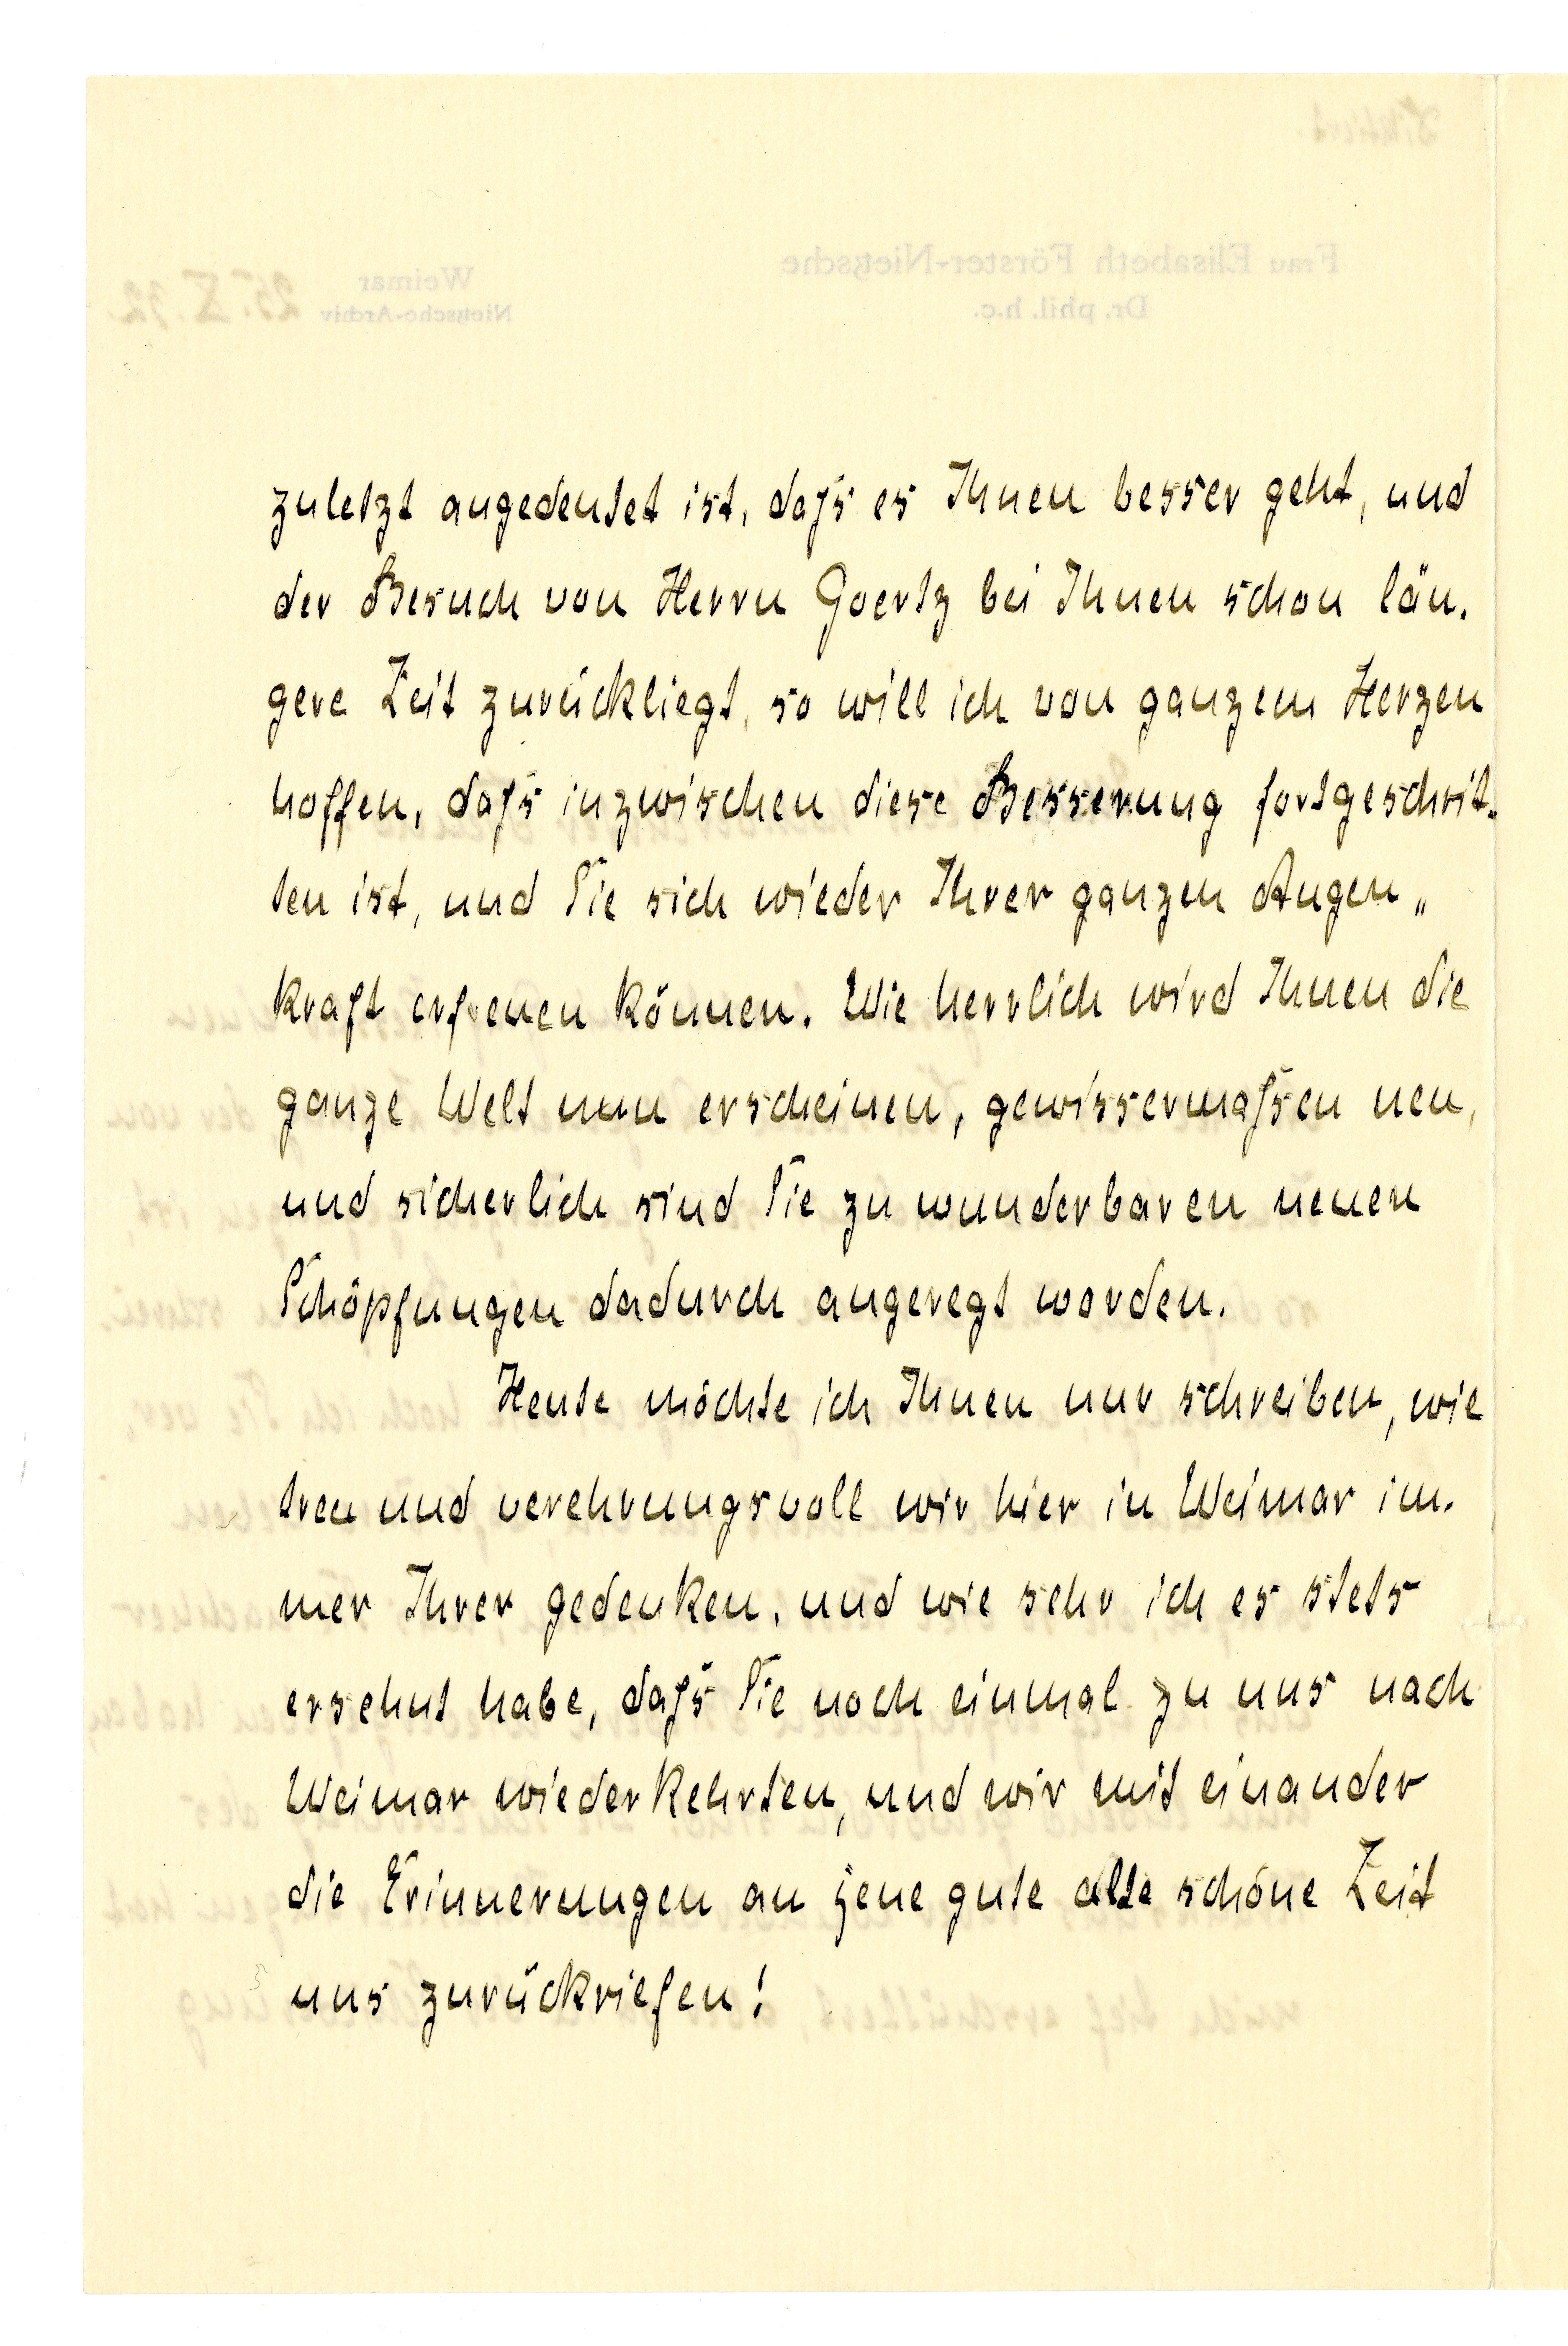 zuletzt angedeutet ist, dass es Ihnen besser geht, und
der Besuch von Herrn Goertz bei Ihnen schon län-
gere Zeit zurückliegt, so will ich von ganzem Herzen
hoffen, dass inzwischen diese Besserung fortgeschrit-
ten ist, und Sie sich wieder Ihrer ganzen Augen„
kraft erfreuen können. Wie herrlich wird Ihnen die
ganze Welt nun erscheinen, gewissermassen neu,
und sicherlich sind Sie zu wunderbaren neuen
Schöpfungen dadurch angeregt worden.
Heute möchte ich Ihnen nur schreiben, wie
treu und verehrungsvoll wir hier in Weimar im-
mer Ihrer gedenken, und wie sehr ich es stets
ersehnt habe, dass Sie noch einmal zu uns nach
Weimar wiederkehrten, und wir mit einander
die Erinnerungen an jene gute alte schöne Zeit
uns zurückriefen!